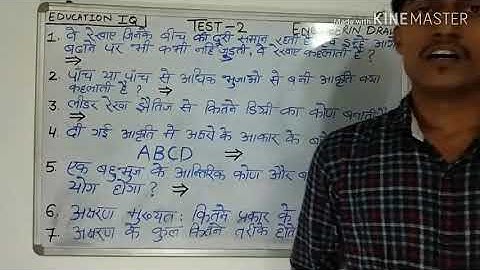 EDUCATION IQ TEST-2 ENG RIN DRAW
Made with KINEMASTER
1. वे रेखाए जिनके बीच की दूरी समान रहती है व इन्हें आगे
बढाने पर भी कभी नहि जुडती, वे रेखाए कहलाती है ?
⇒
2. पाँच या पाँच से अधिक भुजाओ से बनी आकृति क्या
कहलाती है ? ⇒
3. लीडर रेखा क्षैतिज से कितने डिग्री का कोण बनाती
4. दी गई आकृति में अक्षरो के आकार के
ABCD ⇒
5. एक बहुभुज के आन्तरिक कोण और ब
योग होगा ? ⇒
6. अक्षरण मुख्यत: कितने प्रकार के
7. अक्षरण के कुल कितने तरीके होते